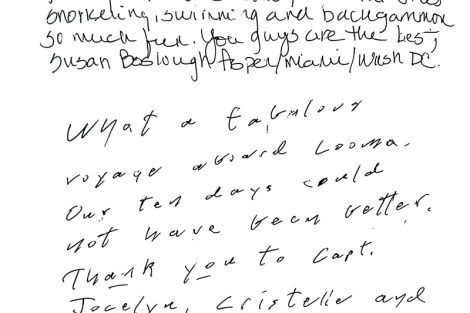 snorkeling, swimming and backgammon
so much fun. You guys are the best,
Susan Boslough Aspen/Miami/Wash DC.
What a fabulous
voyage aboard Loona.
Our ten days could
not have been better.
Thank you to Capt.
Jocelyn, Cristelle and